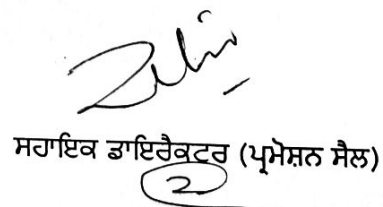 ਸਹਾਇਕ ਡਾਇਰੈਕਟਰ (ਪ੍ਰਮੋਸ਼ਨ ਸੈਲ)
2